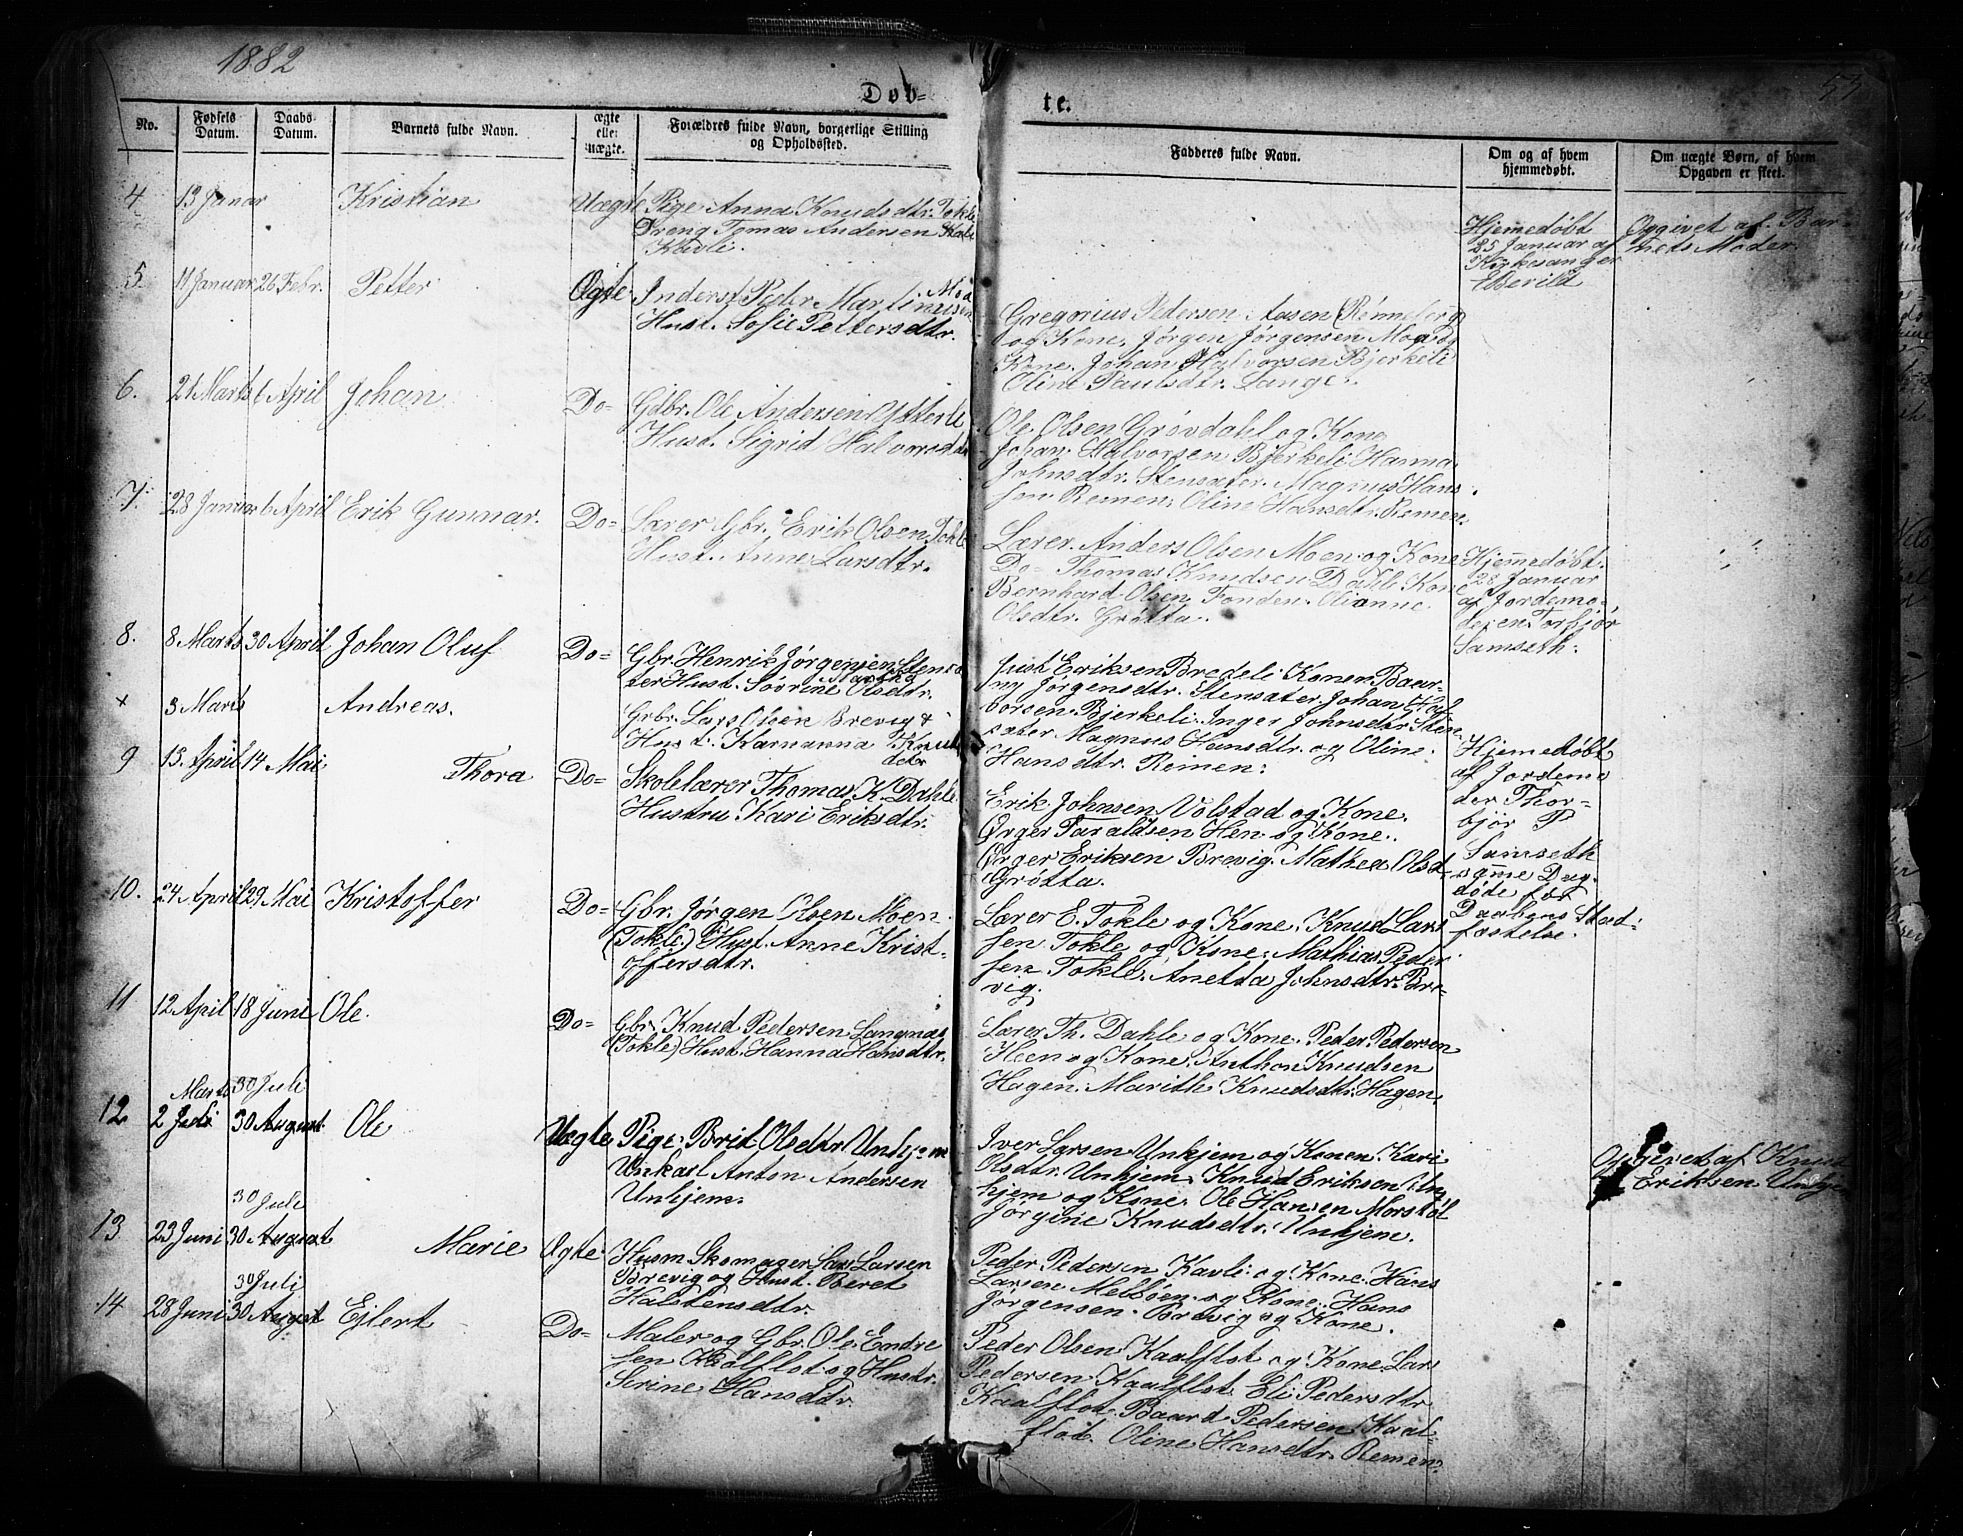 1882
53
Døb=
te.
No.
Fødsels Datum.
Daabs Datum.
Barnets fulde Navn.
ægte eller uægte.
Forældres fulde Navn, borgerlige Stilling og Opholdssted.
Fadderes fulde Navn.
Om og af hvem hjemmedøbt.
Om uægte Børn, af hvem Opgaven er skeet.
4 13 Januar Kristian Uægte Pige Anna Knudsdtr. Tokle
Dreng Tomas Andersen
Kavli.
Hjemedøbt
25 Januar af
Kirkesanger
Berild
Opgivet af Bar-
nets Moder.
5. 11 Januar 26 Febr. Petter Ægte Inderst Peder Martinusen
Hust. Sofie Pettersdtr.
Gregorius Pedersen Aasen (Rønneberg)
og Kone. Jørgen Jørgensen Moa og
Kone. Johan Halvorsen Bjerkeli
Oline Paulsdtr. Lange.
6. 21 Marts 6 April Johan Do= Gdbr. Ole Andersen Ytterli
Hust. Sigrid Halvorsdtr
Ole Olsen Grøvdahl og Kone
Johan Halvorsen Bjerkeli Hanna
Johnsdtr. Stensæter. Magnus Hans
sen Remen. Oline Hansdtr. Remen.
7. 28 Januar 6 April Erik Gunnar. Do= Lærer Gbr. Erik Olsen Tokle
Hust. Anne Larsdtr.
Lærer Anders Olsen Moen og Kone
Do= Thomas Knudsen Dahle Kone
Bernhard Olsen Fonden. Olianne
Olsdtr. Grøtta.
Hjemmedøbt
28 Januar
af Jordemo-
deren Torbjør
Samseth.
8. 8 Marts 30 April Johan Oluf Do= Gbr. Henrik Jørgensen Stensæ
ter Hust. Sørine Olsdtr.
Just Eriksen Brødeli Konen Baar-
ny Jørgensdtr. Stensæter Johan Hal
vorsen Bjerkeli. Inger Johnsdtr Sten
sæter Magnus Hansdtr. og Oline
Hansdtr. Remen.
x 3 Marts Andreas. Gbr. Lars Olsen Brevig &
Hust. Karnanna Knuds
dter
Hjemedøbt
af Jordemo
der Thor=
bjør P
Samseth
samme Dag.
døde før
Daabens Stad=
fæstelse.
9 13 April 14 Mai Thora Do= Skolelærer Thomas K Dahle
Hustru Kari Eriksdtr.
Erik Johnsen Volstad og Kone.
Ørger Taraldsen Hen og Kone.
Ørger Eriksen Brevig. Mathea Olsd-
Grøtta.
10. 24 April 29 Mai Kristoffer Do= Gbr. Jørgen Olsen Moen
(Tokle) Hust. Anne Krist-
offersdtr.
Lærer E. Tokle og Kone. Knud Lars
sen Tokle og Kone. Mathias Peder
sen Tokle. Anetta Johnsdtr. Bre-
vig.
11 12 April 18 Juni Ole. Do= Gbr. Knud Pedersen Langnæs
(Tokle) Hust. Hanna Hansdtr.
Lærer Th. Dahle og Kone. Peder Pedersen
Heen og Kone. Anthon Knudsen
Hagen. Marith Knudsdtr. Hagen.
Marts 30 Juli
12 2 Juli 30 August Ole Uægte Pige Brit Olsdtr Unhjem
Unkarl Anton Andersen
Unhjem.
Iver Larsen Unhjem og Konen Kari
Olsdtr. Unhjem Knud Eriksen Un
hjem og Kone. Ole Hansen Morstøl
Jørgine Knudsdtr. Unhjem.
Opgivet af Knud
Eriksen
30 Juli
13 23 Juni 30 August Marie Ægte Husm Skomager Lars Larsen
Brevig og Hust. Beret
Halstensdtr.
Peder Pedersen Kavli og Kone. Hans
Larsen Melbøen og Kone. Hans
Jørgensen Brevig og Kone.
30 Juli
14 28 Juni 30 August Ejlert Do= Maler og Gbr. Ole Endre
sen Kaalflot og Hustr.
Serine Hansdtr
Peder Olsen Kaalflot og Kone. Lars
Pedersen Kaalflot Eli Pedersdtr
Kaalflot. Baard Pedersen Kaal-
flot. Oline Hansdtr. Remen.